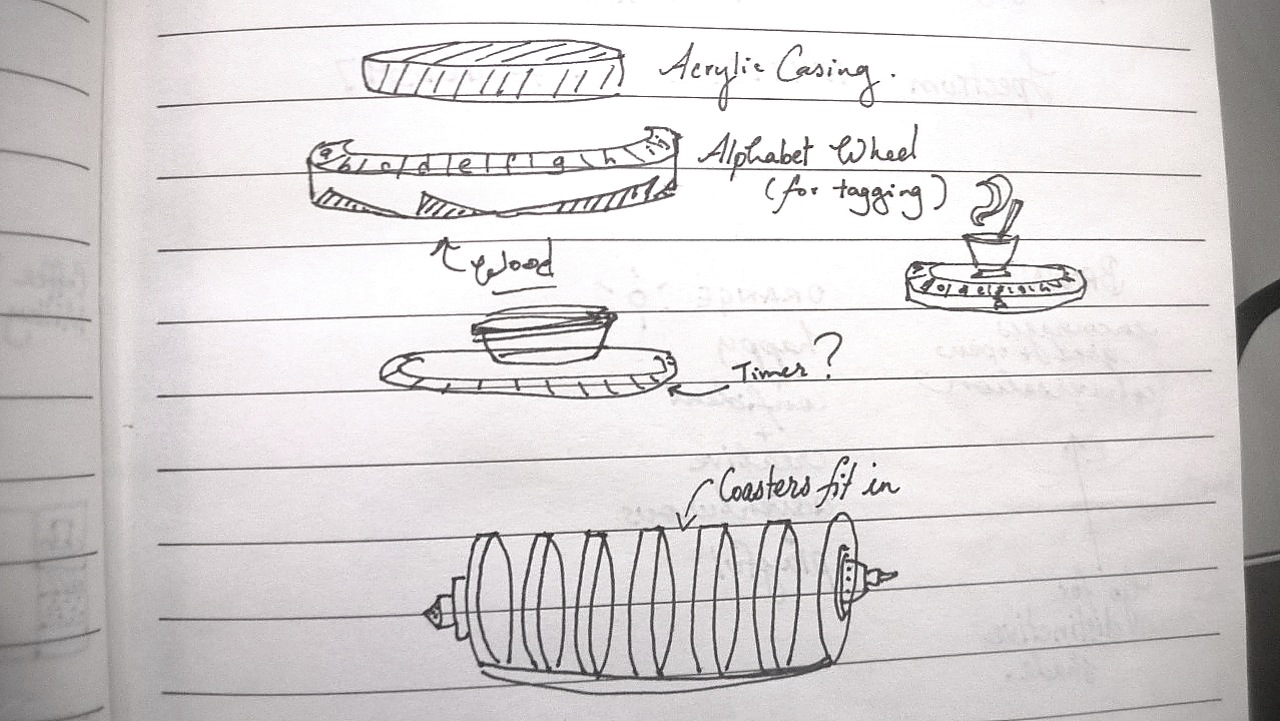 Acrylic Casing.
a b c d e f g h
Alphabet Wheel
(for tagging)
Wood
Timer?
Coasters fit in